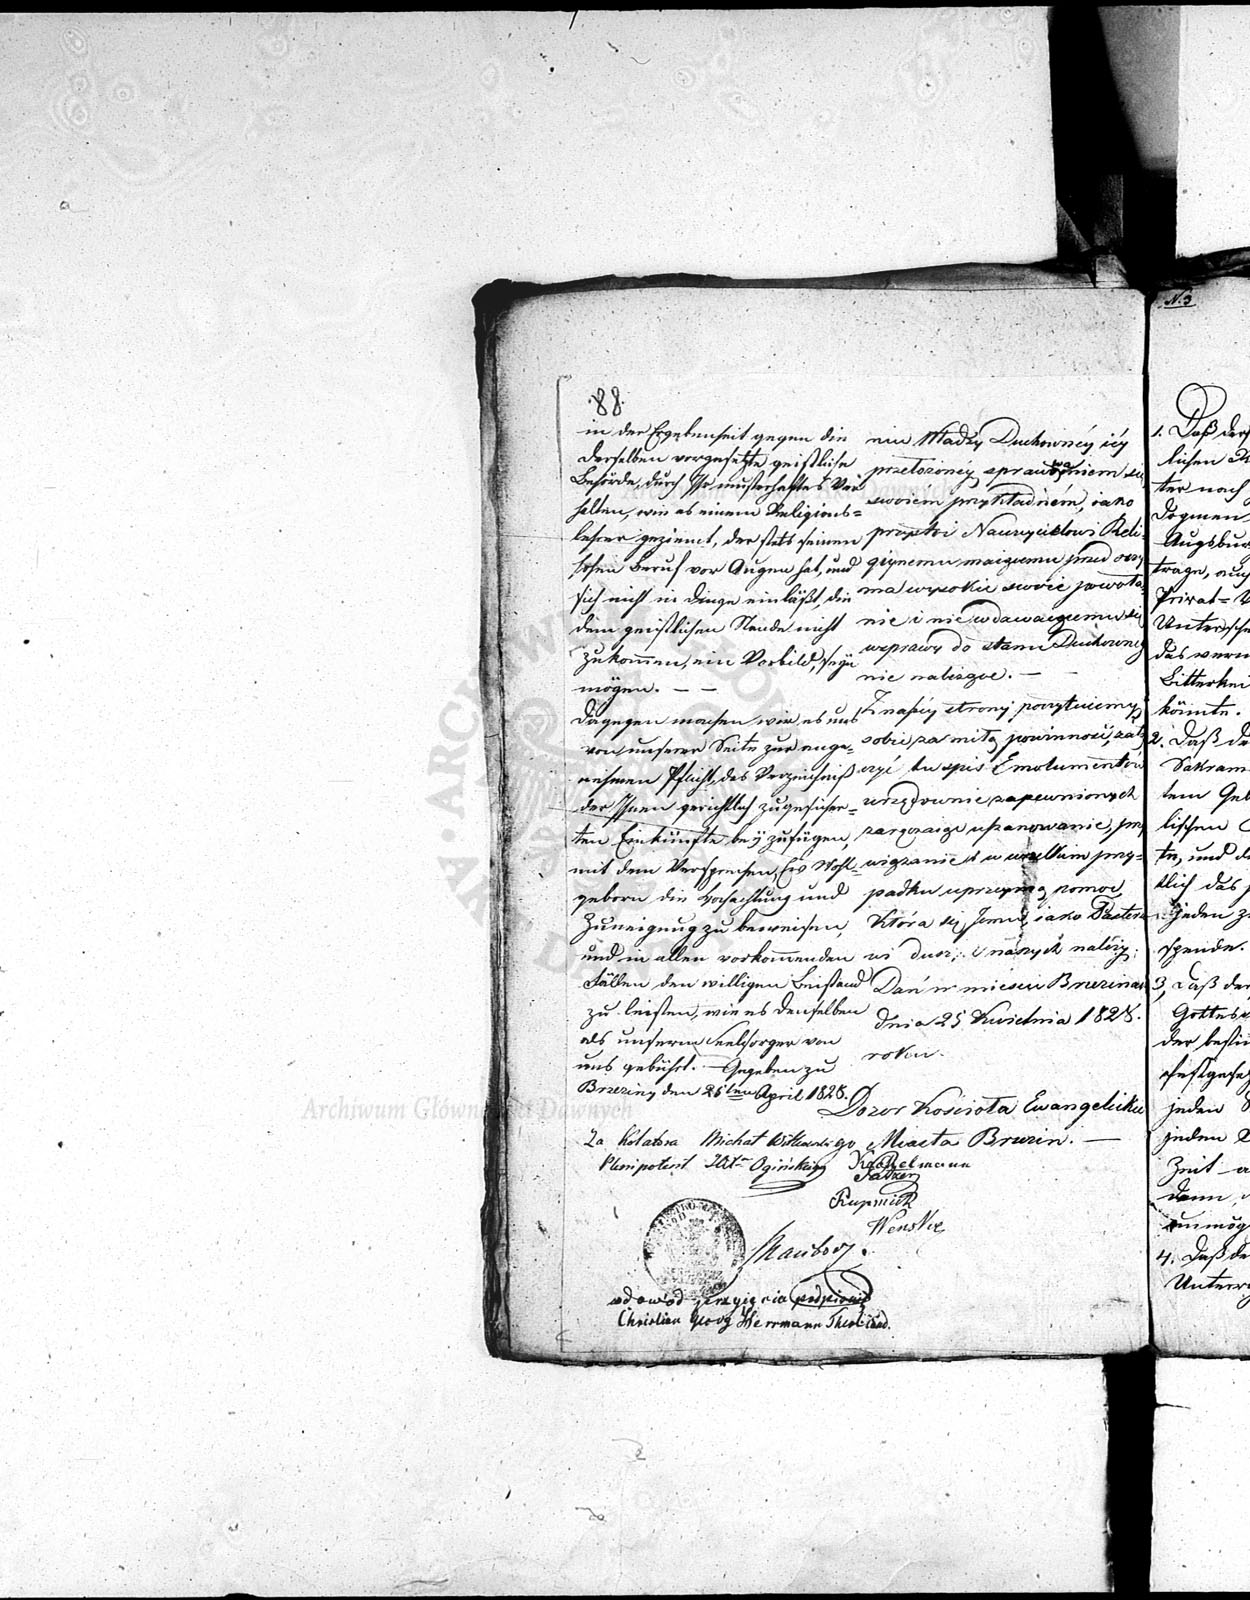 88.
in der Ergebenheit gegen die
derselben vorgesetzte geistliche
Behörde, durch Ihr musterhaftes Ver
halten, wie es einem Religions=
lehrer geziemt, der stets seinen
hohen Beruf vor Augen hat, und
sich nicht in Dinge einläßt, die
dem geistlichen Stande nicht
zukommen, ein Vorbild, seyn
mögen. — —
Dagegen machen wir es uns
von unserer Seite zur ange=
nehmen Pflicht, das Verzeichniß
der Ihnen gerichtlich zugesicher=
ten Einkünfte beÿ zufügen,
mit dem Versprechen, Ew Wohl=
geborn die Hochachtung und
Zuneigung zu beweisen,
und in allen vorkommenden
Fällen den willigen Beistand
zu leisten, wie es denselben
als unserm Seelsorger von
uns gebührt. — Gegeben zu
Brzeziny den 25ten April 1828.
niu Władzy Duchownéy iéy
przełożonéy, sprawowaniem się
swoiém przykładném, iako
przystoi Nauczycielowi Reli-
giynemu maiącemu przed oczy
ma wysokie swoie powoła-
nie i nie wdawaiącemu się
w sprawy do stanu Duchowney
nie należące. —
Z naszéy strony poczytuiemy
sobie za miłą powinność, załą
czyć tu spis Emolumentów
urzędownie zapewnionych
zaręczaiąc uszanowanie, przy
wiązanie i w wszelkim przy=
padku uprzeymą pomoc,
Która się Jemu, iako Pasterzo
wi dusz, naszych należy.
Dań w mieście Brzezinach
dnia 25 Kwietnia 1828.
roku.
Dozor Kościoła Ewangelicko
go Miasta Brzezin. —
Za Kolatora Michał
Plenipotent Ogińskiego
Wenske
na dowód przyięcia podpisuię
Christian Georg Herrmann
Archiwum Główne Akt Dawnych
N. 3
1. Daß ders
lichen
ter nach
Dogmen,
Augsbur
trage, auch
Privat=
Untersch
das verm
Bitterkei
könnte.
2. Daß de
Sakram
tem Geb
lischen
te, und d
tlich das
jeden z
spende.
3, Daß der
Gottes
der besti
festgese
jeden
jeden
Zeit a
denn,
unmög
4. Daß de
Unterr